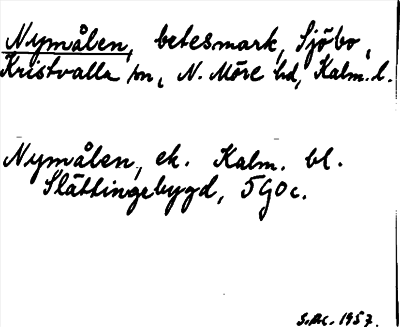 Nymålen, betesmark, Sjöbo,
Kristvalla sn, N. Möre hd, Kalm. l.
Nymålen, ek. Kalm. bl.
Slättingebygd, 5G0c.
S.Ac. 1957.